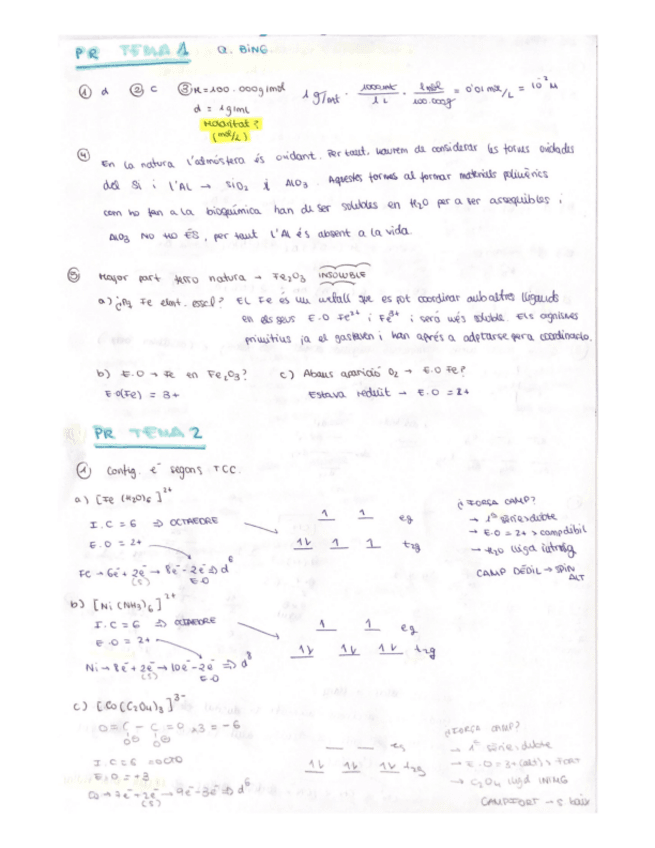 PR TEMA 1 Q. BING.
① d ② C ③ M = 100.000g/mol 1 g/mL · 1000mL / 1 L · 1mol / 100.000g = 0'01 mol/L = 10⁻² M
d = 1g/mL
Molaritat?
(mol/L)
④ En la natura l'atmosfera és oxidant. Per tant, haurem de considerar les formes oxidades
del Si i l'Al → SiO₂ i AlO₃. Aquestes formes al formar materials polimèrics
com ho fan a la bioquímica han de ser solubles en H₂O per a ser assequibles i
AlO₃ NO HO ÉS, per tant l'Al és absent a la vida.
⑤ Major part ferro natura → Fe₂O₃ INSOLUBLE
a) ¿Pq Fe elmt. essel? EL Fe és un metall que es pot coordinar amb altres lligands
en els seus E.O Fe²⁺ i Fe³⁺ i serà més soluble. Els organismes
primitius ja el gastaven i han aprés a adaptarse per a coordinarlo.
b) E.O → Fe en Fe₂O₃? c) Abans aparició O₂ → E.O Fe?
E.O(Fe) = 3+ Estava reduït → E.O = 2+
PR TEMA 2
① Config. e⁻ segons TCC.
a) [Fe (H₂O)₆]²⁺
I.C = 6 ⇒ OCTAEDRE
E.O = 2+
Fe → 6e⁻ + 2e⁻ → 8e⁻ - 2e⁻ ⇒ d⁶
(s) E.O
1 1 eg
1↓ 1 1 t₂g
¿FORÇA CAMP?
→ 1ª sèrie > dèbil
→ E.O = 2+ > camp dèbil
→ H₂O lliga
CAMP DÈBIL → SPIN
ALT
b) [Ni (NH₃)₆]²⁺
I.C = 6 ⇒ OCTAEDRE
E.O = 2+
Ni → 8e⁻ + 2e⁻ → 10e⁻ - 2e⁻ ⇒ d⁸
(s) E.O
1 1 eg
1↓ 1↓ 1↓ t₂g
c) [Co(C₂O₄)₃]³⁻
O = C - C = O x3 = -6
O⊖ O⊖
I.C = 6
E.O = +3
Co → 7e⁻ + 2e⁻ → 9e⁻ - 3e⁻ ⇒ d⁶
(s)
eg
1↓ 1↓ 1↓ t₂g
¿FORÇA CAMP?
→ 1ª sèrie > dèbil
→ E.O = 3+ (alt) > FORT
→ C₂O₄ lligd
CAMP FORT → S baix